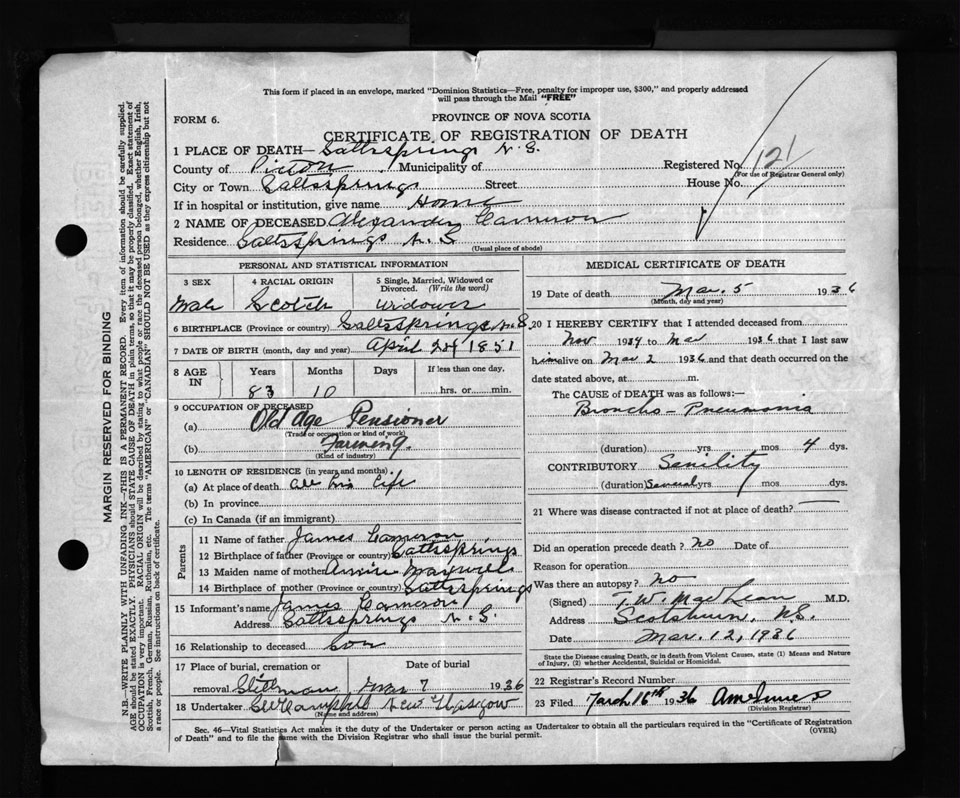 This form if placed in an envelope, marked "Dominion Statistics—Free, penalty for improper use, $300," and properly addressed
will pass through the Mail "FREE"
FORM 6.
PROVINCE OF NOVA SCOTIA
CERTIFICATE OF REGISTRATION OF DEATH
1 PLACE OF DEATH— Saltssprings N.S.
County of Pictou, Municipality of Registered No. 121
(For use of Registrar General only)
City or Town Saltssprings Street House No.
If in hospital or institution, give name Home
2 NAME OF DECEASED Alexander Cameron
Residence Saltssprings N.S
(Usual place of abode)
PERSONAL AND STATISTICAL INFORMATION
3 SEX 4 RACIAL ORIGIN 5 Single, Married, Widowed or
Divorced. (Write the word)
Male Scotch Widower
6 BIRTHPLACE (Province or country) Saltssprings N.S.
7 DATE OF BIRTH (month, day and year) April 1851
8 AGE IN Years Months Days If less than one day,
83 10 hrs. or min.
9 OCCUPATION OF DECEASED
(a) Old Age Pensioner
(Trade or occupation or kind of work)
(b) Farming
(Kind of industry)
10 LENGTH OF RESIDENCE (in years and months)
(a) At place of death all his life
(b) In province
(c) In Canada (if an immigrant)
Parents
11 Name of father James Cameron
12 Birthplace of father (Province or country) Saltssprings
13 Maiden name of mother Annie
14 Birthplace of mother (Province or country) Saltssprings
15 Informant's name James Cameron
Address Saltssprings N.S.
16 Relationship to deceased son
17 Place of burial, cremation or Date of burial
removal Mar 7 1936
18 Undertaker New Glasgow
(Name and address)
MEDICAL CERTIFICATE OF DEATH
19 Date of death Mar. 5 1936
(Month, day and year)
20 I HEREBY CERTIFY that I attended deceased from
Nov 1934 to Mar 1936 that I last saw
him alive on Mar 2 1936 and that death occurred on the
date stated above, at m.
The CAUSE of DEATH was as follows:—
Broncho-Pneumonia
(duration) yrs. mos 4 dys.
CONTRIBUTORY Senility
(duration) Several yrs mos. dys.
21 Where was disease contracted if not at place of death?
Did an operation precede death? No Date of
Reason for operation
Was there an autopsy? No
(Signed) T.W. MacLean M.D.
Address Scotsburn, N.S.
Date Mar. 12, 1936
State the Disease causing Death, or in death from Violent Causes, state (1) Means and Nature
of Injury, (2) whether Accidental, Suicidal or Homicidal.
22 Registrar's Record Number
23 Filed March 16th 1936
(Division Registrar)
Sec. 46—Vital Statistics Act makes it the duty of the Undertaker or person acting as Undertaker to obtain all the particulars required in the "Certificate of Registration
of Death" and to file the same with the Division Registrar who shall issue the burial permit. (OVER)
MARGIN RESERVED FOR BINDING
N.B.—WRITE PLAINLY WITH UNFADING INK—THIS IS A PERMANENT RECORD. Every item of information should be carefully supplied.
AGE should be stated EXACTLY. PHYSICIANS should STATE CAUSE OF DEATH in plain terms, so that it may be properly classified. Exact statement of
OCCUPATION is very important. RACIAL ORIGIN will be described by stating to what people or race the deceased person belonged, whether English, Irish,
Scottish, French, German, Russian, Ruthenian, etc. The terms "AMERICAN" or "CANADIAN" SHOULD NOT BE USED as they express citizenship but not
a race or people. See instructions on back of certificate.